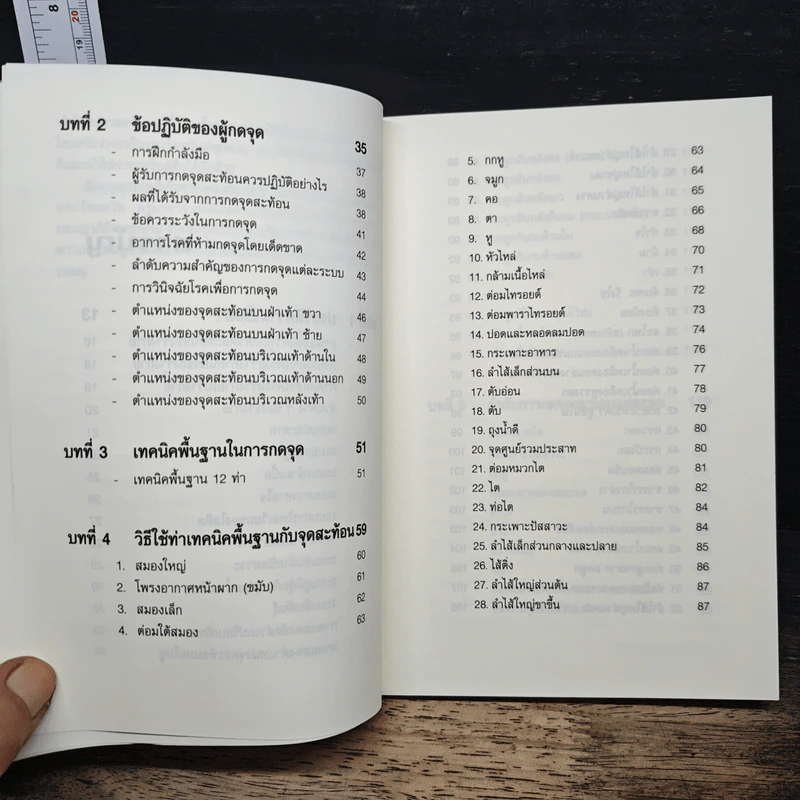 8
20
19
บทที่ 2 ข้อปฏิบัติของผู้กดจุด 35
- การฝึกกำลังมือ 37
- ผู้รับการกดจุดสะท้อนควรปฏิบัติอย่างไร 38
- ผลที่ได้รับจากการกดจุดสะท้อน 38
- ข้อควรระวังในการกดจุด 41
- อาการโรคที่ห้ามกดจุดโดยเด็ดขาด 42
- ลำดับความสำคัญของการกดจุดแต่ละระบบ 43
- การวินิจฉัยโรคเพื่อการกดจุด 44
- ตำแหน่งของจุดสะท้อนบนฝ่าเท้า ขวา 46
- ตำแหน่งของจุดสะท้อนบนฝ่าเท้า ซ้าย 47
- ตำแหน่งของจุดสะท้อนบริเวณเท้าด้านใน 48
- ตำแหน่งของจุดสะท้อนบริเวณเท้าด้านนอก 49
- ตำแหน่งของจุดสะท้อนบริเวณหลังเท้า 50
บทที่ 3 เทคนิคพื้นฐานในการกดจุด 51
- เทคนิคพื้นฐาน 12 ท่า 51
บทที่ 4 วิธีใช้ท่าเทคนิคพื้นฐานกับจุดสะท้อน 59
1. สมองใหญ่ 60
2. โพรงอากาศหน้าผาก (ขมับ) 61
3. สมองเล็ก 62
4. ต่อมใต้สมอง 63
5. กกหู 63
6. จมูก 64
7. คอ 65
8. ตา 66
9. หู 68
10. หัวไหล่ 70
11. กล้ามเนื้อไหล่ 71
12. ต่อมไทรอยด์ 72
13. ต่อมพาราไทรอยด์ 73
14. ปอดและหลอดลมปอด 74
15. กระเพาะอาหาร 76
16. ลำไส้เล็กส่วนบน 77
17. ตับอ่อน 78
18. ตับ 79
19. ถุงน้ำดี 80
20. จุดศูนย์รวมประสาท 80
21. ต่อมหมวกไต 81
22. ไต 82
23. ท่อไต 84
24. กระเพาะปัสสาวะ 84
25. ลำไส้เล็กส่วนกลางและปลาย 85
26. ไส้ติ่ง 86
27. ลำไส้ใหญ่ส่วนต้น 87
28. ลำไส้ใหญ่ขาขึ้น 87